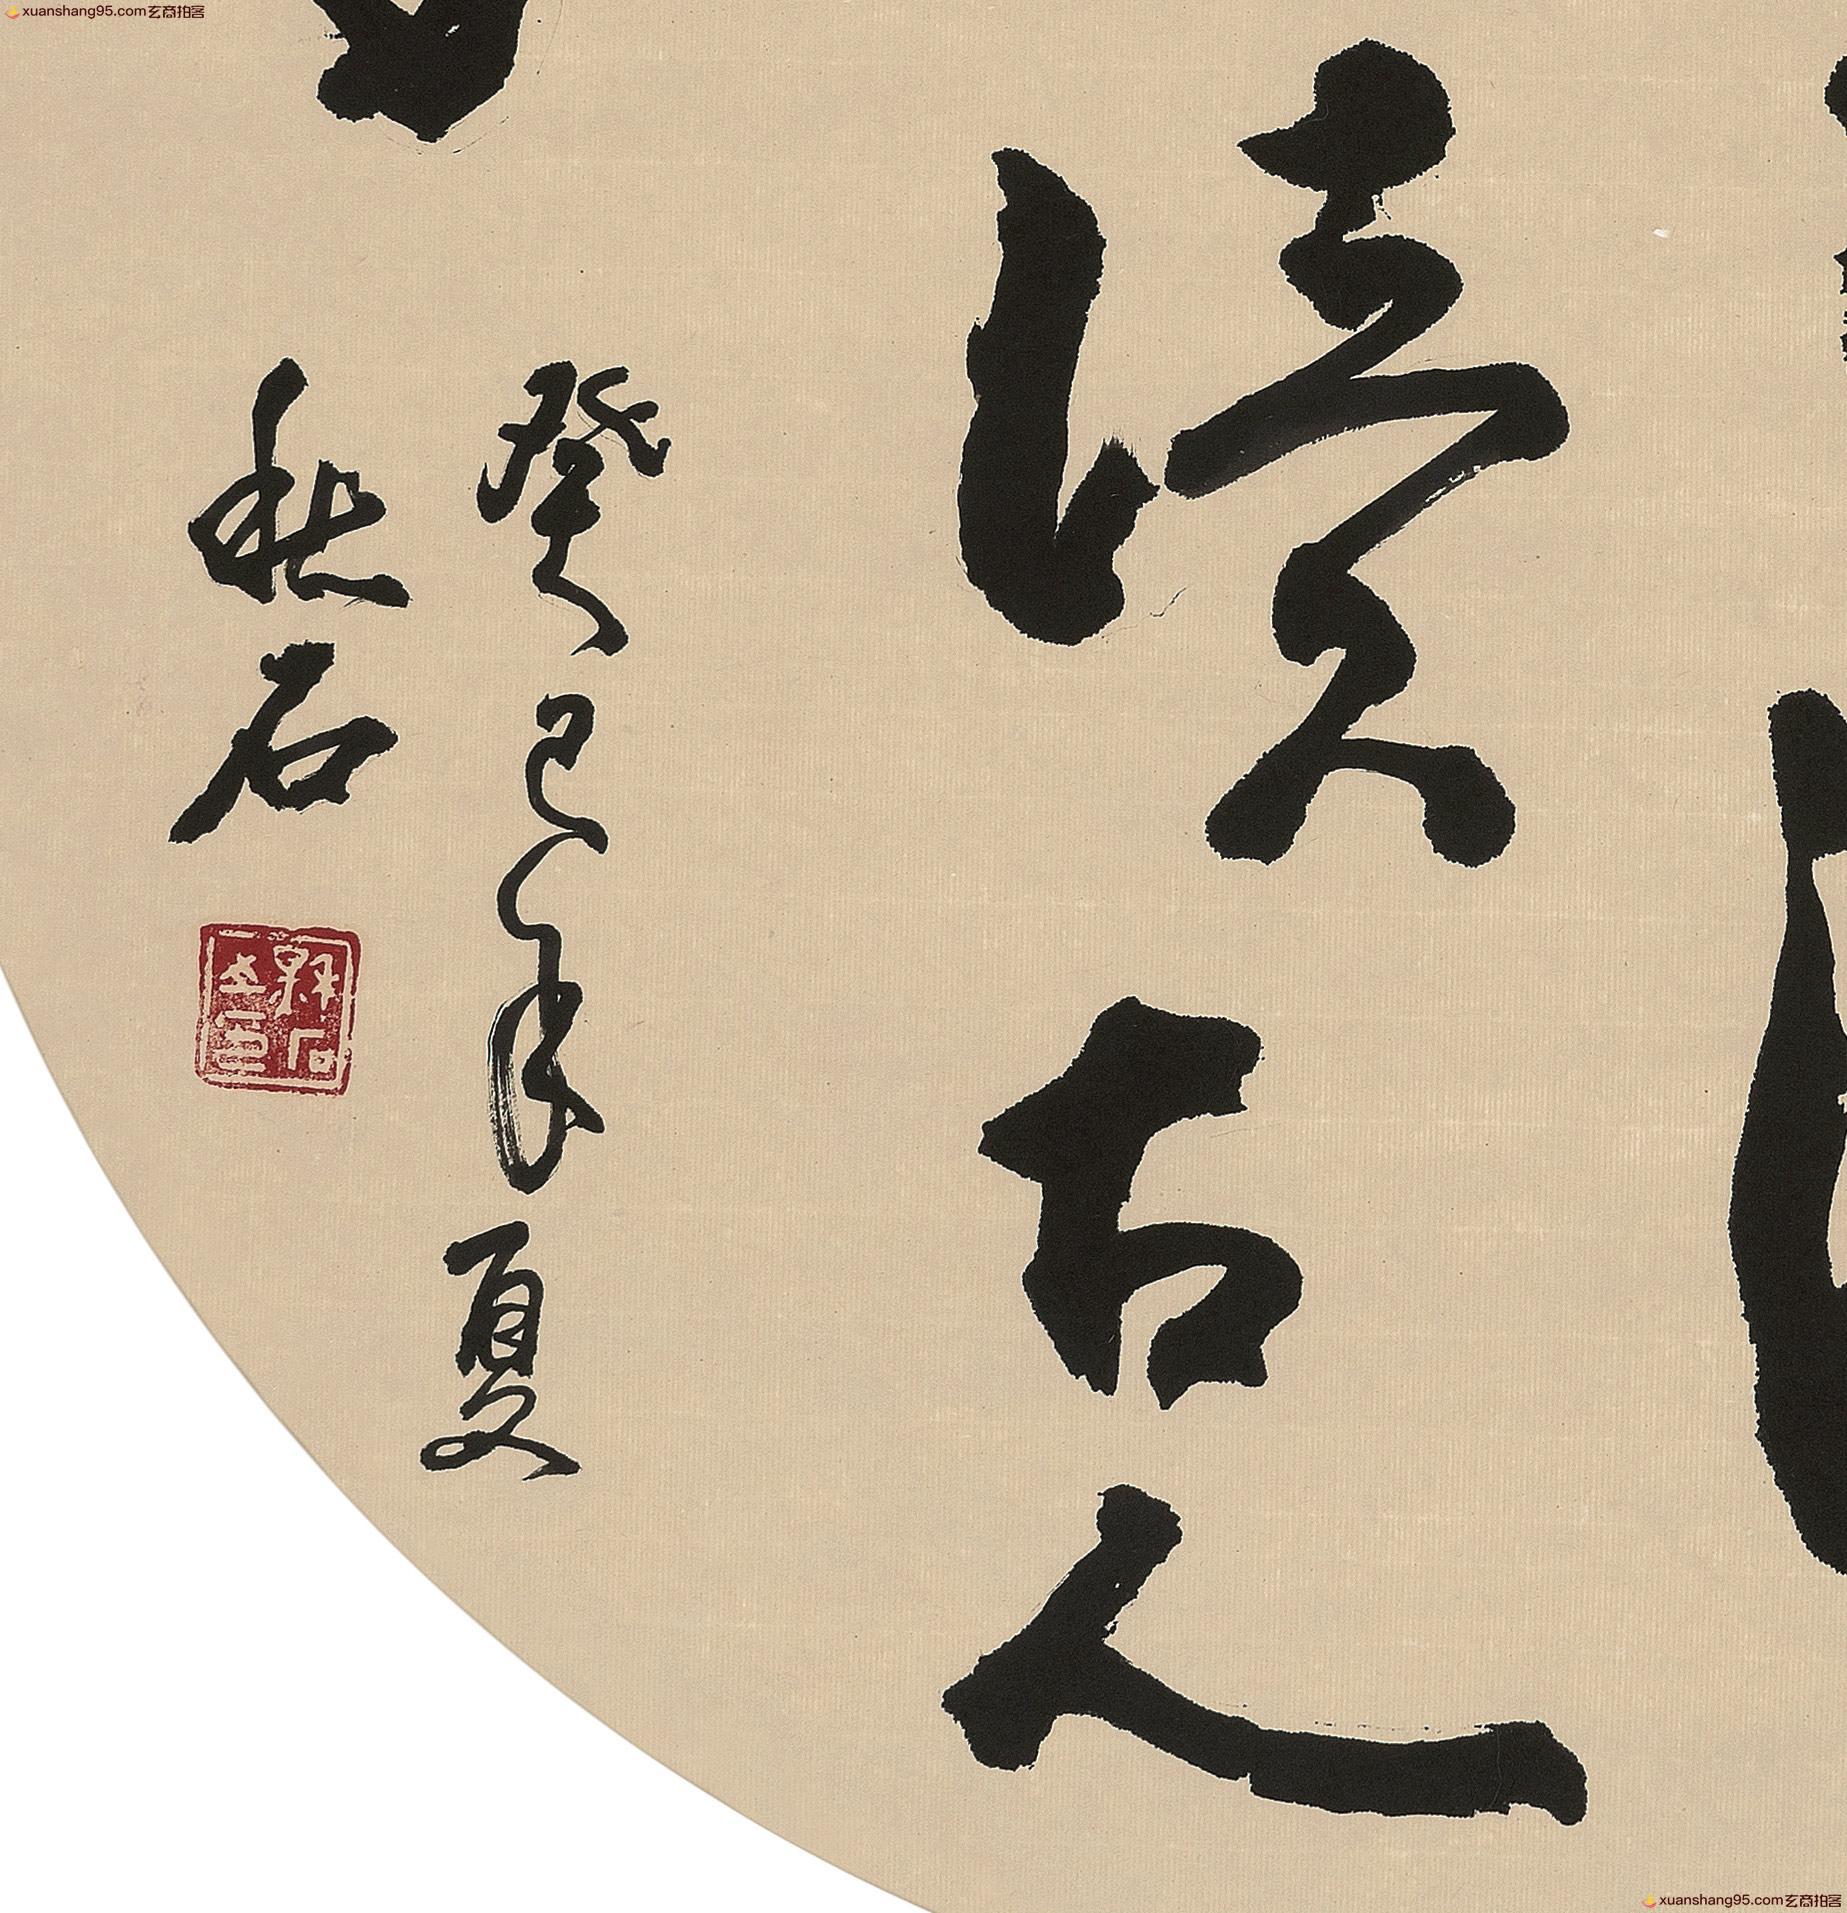 xuanshang95.com玄商拍客
读古人
癸巳年夏
秋石
xuanshang95.com玄商拍客